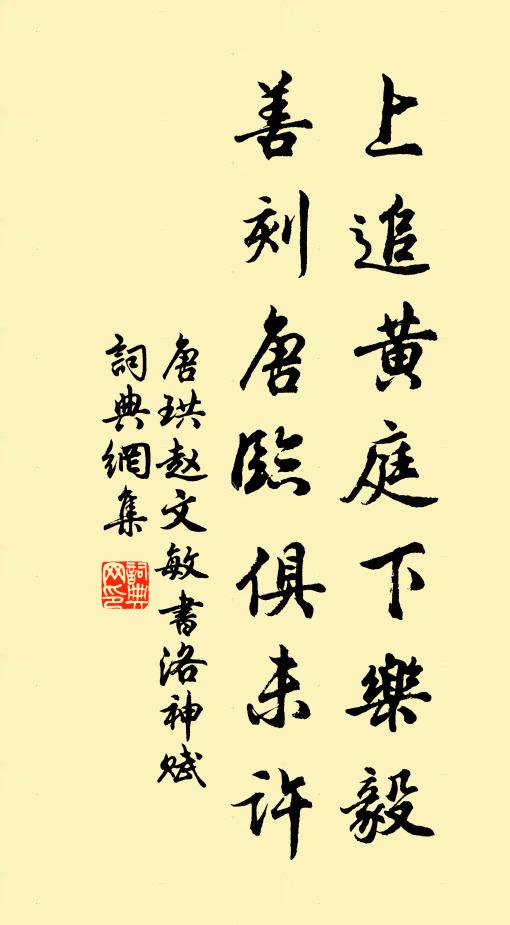 上追黄庭下樂毅
善刻唐臨俱未許
唐珙赵文敏書洛神赋
詞典網集
詞典网印